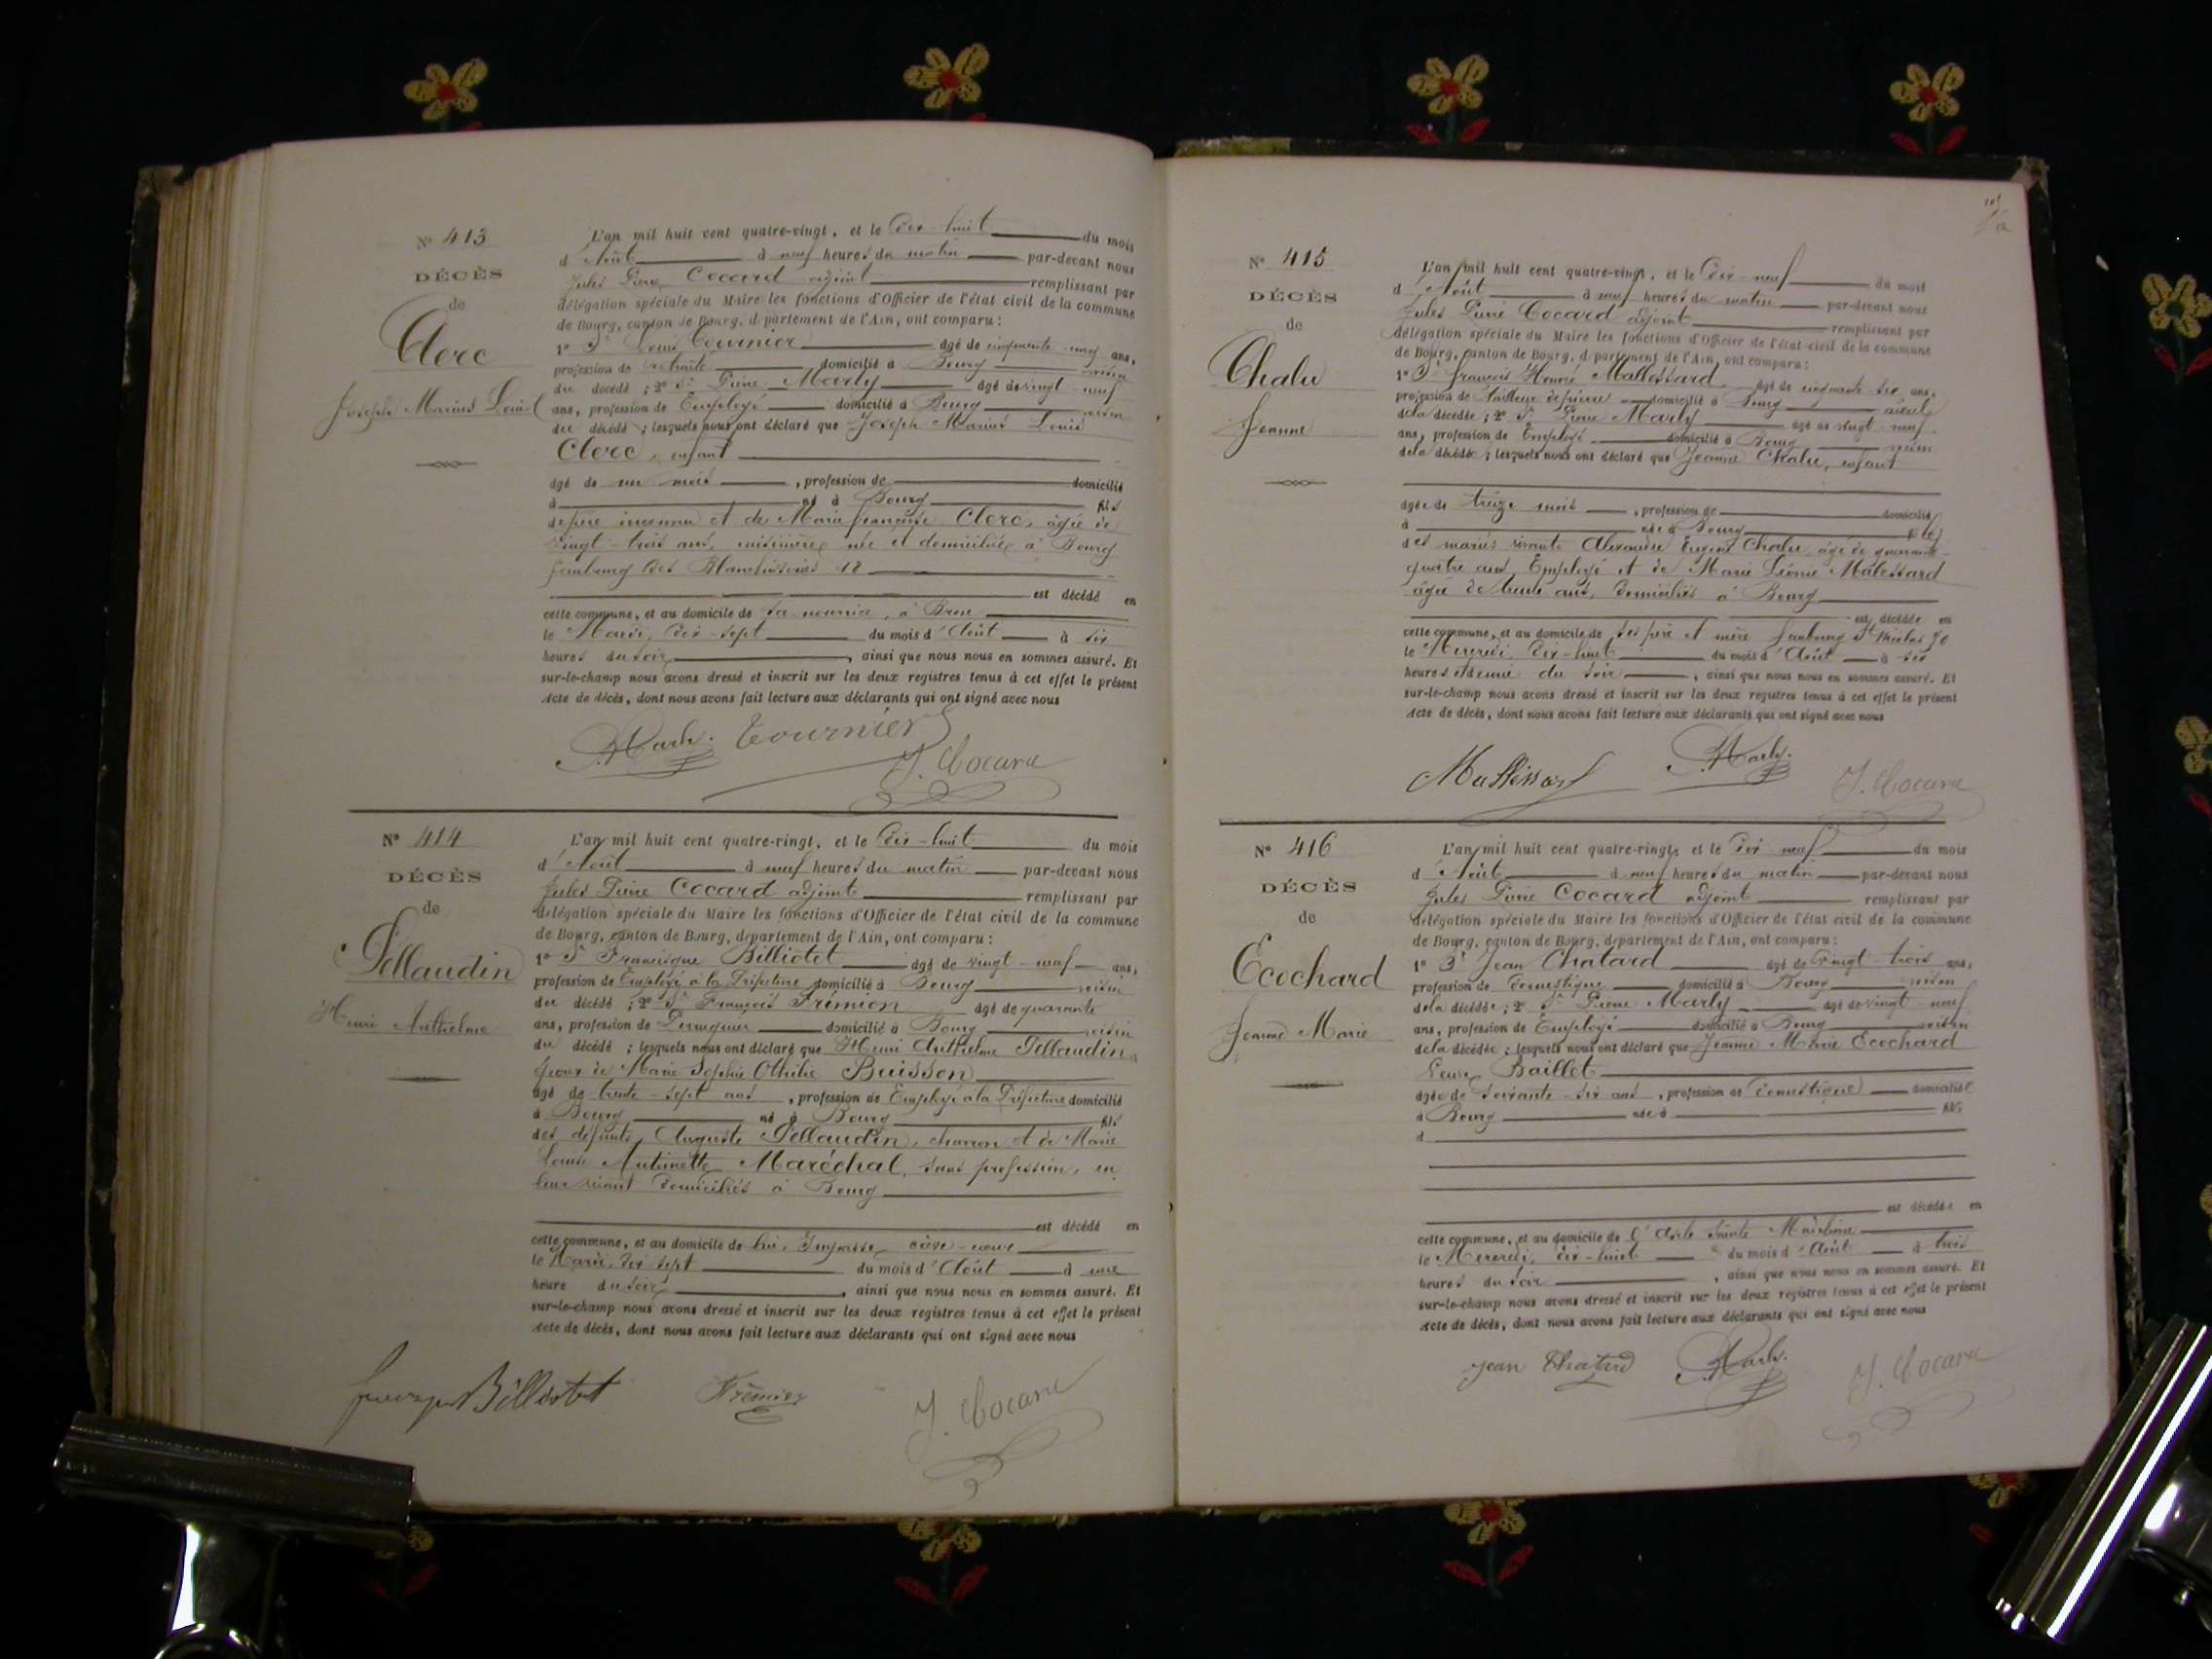 N° 413
DÉCÈS
de
Clerc
Joseph Marius Louis
L'an mil huit cent quatre-vingt, et le Dix-huit du mois
d'Août à neuf heures du matin par-devant nous
Jules Pierre Cocard adjoint remplissant par
délégation spéciale du Maire les fonctions d'Officier de l'état civil de la commune
de Bourg, canton de Bourg, département de l'Ain, ont comparu :
1° Sr Louis Tournier âgé de cinquante-cinq ans,
profession de retraité domicilié à Bourg voisin
du décédé ; 2° Sr Pierre Marly âgé de vingt-neuf
ans, profession de Employé domicilié à Bourg voisin
du décédé ; lesquels nous ont déclaré que Joseph Marius Louis
Clerc, enfant
âgé de un mois, profession de domicilié
à né à Bourg fils
de père inconnu et de Marie Françoise Clerc, âgée de
vingt-trois ans, cuisinière, née et domiciliée à Bourg
faubourg des Blanchisseries 18
est décédé en
cette commune, et au domicile de sa nourrice, à Brou
le Mardi, dix-sept du mois d'Août à six
heures du soir, ainsi que nous nous en sommes assuré. Et
sur-le-champ nous avons dressé et inscrit sur les deux registres tenus à cet effet le présent
Acte de décès, dont nous avons fait lecture aux déclarants qui ont signé avec nous
P. Marly. Tournier
J. Cocard
N° 414
DÉCÈS
de
Pellaudin
Henri Anthelme
L'an mil huit cent quatre-vingt, et le Dix-huit du mois
d'Août à neuf heures du matin par-devant nous
Jules Pierre Cocard adjoint remplissant par
délégation spéciale du Maire les fonctions d'Officier de l'état civil de la commune
de Bourg, canton de Bourg, département de l'Ain, ont comparu :
1° Sr Francisque Billiotet âgé de vingt-neuf ans,
profession de Employé à la Préfecture domicilié à Bourg voisin
du décédé ; 2° Sr François Frémion âgé de quarante
ans, profession de Perruquier domicilié à Bourg voisin
du décédé ; lesquels nous ont déclaré que Henri Anthelme Pellaudin
époux de Marie Sophie Othilie Buisson
âgé de trente-sept ans, profession de Employé à la Préfecture domicilié
à Bourg né à Bourg fils
des défunts, Auguste Pellaudin, charron et de Marie
Louise Antoinette Maréchal, sans profession, en
leur vivant domiciliés à Bourg
est décédé en
cette commune, et au domicile de lui, Impasse crève-cœur
le Mardi, dix-sept du mois d'Août à une
heure du soir, ainsi que nous nous en sommes assuré. Et
sur-le-champ nous avons dressé et inscrit sur les deux registres tenus à cet effet le présent
Acte de décès, dont nous avons fait lecture aux déclarants qui ont signé avec nous
Billiotet Frémion J. Cocard
N° 415
DÉCÈS
de
Chalu
Jeanne
L'an mil huit cent quatre-vingt, et le Dix-neuf du mois
d'Août à neuf heures du matin par-devant nous
Jules Pierre Cocard adjoint remplissant par
délégation spéciale du Maire les fonctions d'Officier de l'état civil de la commune
de Bourg, canton de Bourg, département de l'Ain, ont comparu :
1° Sr François Honoré Mallessard âgé de cinquante-six ans,
profession de tailleur de pierre domicilié à Bourg aïeul
de la décédée ; 2° Sr Pierre Marly âgé de vingt-neuf
ans, profession de Employé domicilié à Bourg voisin
de la décédée ; lesquels nous ont déclaré que Jeanne Chalu, enfant
âgée de treize mois, profession de domicilié
à née à Bourg fille
des mariés vivants Alexandre Eugène Chalu âgé de quarante-
quatre ans, Employé et de Marie Léonie Malessard
âgée de trente ans, domiciliés à Bourg
est décédée en
cette commune, et au domicile de ses père et mère faubourg St Nicolas 30
le Mercredi, dix-huit du mois d'Août à six
heures et demie du soir, ainsi que nous nous en sommes assuré. Et
sur-le-champ nous avons dressé et inscrit sur les deux registres tenus à cet effet le présent
Acte de décès, dont nous avons fait lecture aux déclarants qui ont signé avec nous
Mallessard P. Marly. J. Cocard
N° 416
DÉCÈS
de
Ecochard
Jeanne Marie
L'an mil huit cent quatre-vingt, et le Dix-neuf du mois
d'Août à neuf heures du matin par-devant nous
Jules Pierre Cocard adjoint remplissant par
délégation spéciale du Maire les fonctions d'Officier de l'état civil de la commune
de Bourg, canton de Bourg, département de l'Ain, ont comparu :
1° Sr Jean Chatard âgé de vingt-trois ans,
profession de domestique domicilié à Bourg voisin
de la décédée ; 2° Sr Pierre Marly âgé de vingt-neuf
ans, profession de Employé domicilié à Bourg voisin
de la décédée ; lesquels nous ont déclaré que Jeanne Marie Ecochard
veuve Baillet
âgée de soixante-six ans, profession de domestique domiciliée
à Bourg née à fille
d
est décédée en
cette commune, et au domicile de l'Asile Sainte Madeleine
le Mercredi, dix-huit du mois d'Août à trois
heures du soir, ainsi que nous nous en sommes assuré. Et
sur-le-champ nous avons dressé et inscrit sur les deux registres tenus à cet effet le présent
Acte de décès, dont nous avons fait lecture aux déclarants qui ont signé avec nous
Jean Chatard P. Marly. J. Cocard